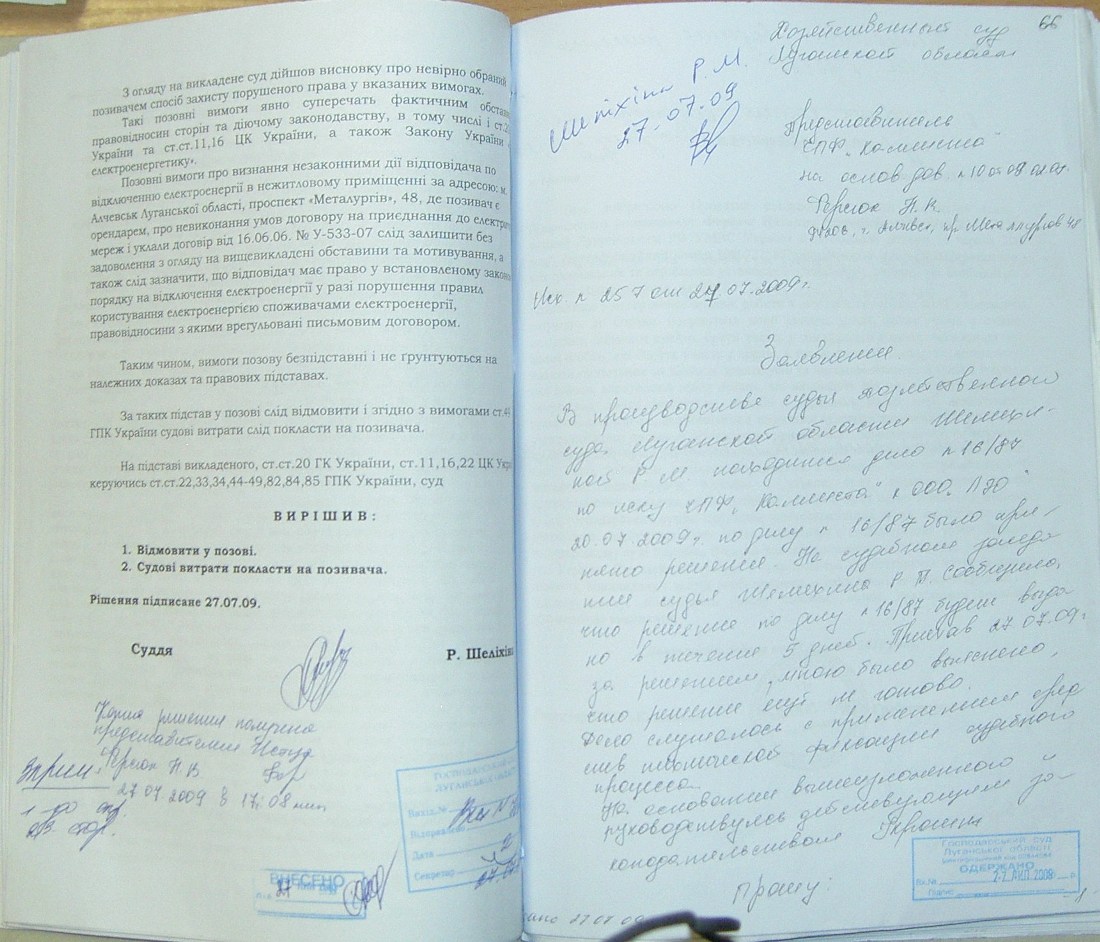 З огляду на викладене суд дійшов висновку про невірно обраний
позивачем спосіб захисту порушеного права у вказаних вимогах.
Такі позовні вимоги явно суперечать фактичним обстав
правовідносин сторін та діючому законодавству, в тому числі і ст.2
України та ст.ст.11,16 ЦК України, а також Закону України
електроенергетику».
Позовні вимоги про визнання незаконними дії відповідача по
відключенню електроенергії в нежитловому приміщенні за адресою: м.
Алчевськ Луганської області, проспект «Металургів», 48, де позивач є
орендарем, про невиконання умов договору на приєднання до електро
мереж і уклали договір від 16.06.06. № У-533-07 слід залишити без
задоволення з огляду на вищевикладені обставини та мотивування, а
також слід зазначити, що відповідач має право у встановленому законо
порядку на відключення електроенергії у разі порушення правил
користування електроенергією споживачами електроенергії,
правовідносини з якими врегульовані письмовим договором.
Таким чином, вимоги позову безпідставні і не ґрунтуються на
належних доказах та правових підставах.
За таких підстав у позові слід відмовити і згідно з вимогами ст.49
ГПК України судові витрати слід покласти на позивача.
На підставі викладеного, ст.ст.20 ГК України, ст.11,16,22 ЦК Укр
керуючись ст.ст.22,33,34,44-49,82,84,85 ГПК України, суд
ВИРІШИВ:
1. Відмовити у позові.
2. Судові витрати покласти на позивача.
Рішення підписане 27.07.09.
Суддя
Р. Шеліхіна
Копия решения получена
представителем Истца
27 07 2009 в 17:08 мин
ГОСПОДАРСЬКИЙ СУД
ЛУГАНСЬКОЇ ОБЛАСТІ
Вихід.№
Відправлено
Дата
Секретар
ВНЕСЕНО
27
66
Хозяйственный суд
Луганской области
Шеліхіна Р.М.
27.07.09
Представитель
ЧПФ „Коммиста"
на основ дов. н 10 от 08
г. Алчевск, пр. Металлургов 48
Исх н 257 от 27.07.2009г.
Заявление
В производстве судьи хозяйственного
суда Луганской области Шелихи-
ной Р.М. находится дело н 16/87
по иску ЧПФ „Коммиста" к ООО
20.07.2009г. по делу н 16/87 было при-
нято решение. На судебном заседа
нии судья Шелихина Р.М. сообщила,
что решение по делу н 16/87 будет выда
но в течение 5 дней. Приехав 27.07.09г.
за решением, мною было выяснено,
что решение ещё не готово.
Дело слушалось с применением сред
ств технической фиксации судебного
процесса.
На основании вышеизложенного и
руководствуясь действующим за-
конодательством Украины
Прошу:
Господарський суд
Луганської області
ОДЕРЖАНО
Вх.№
Підпис